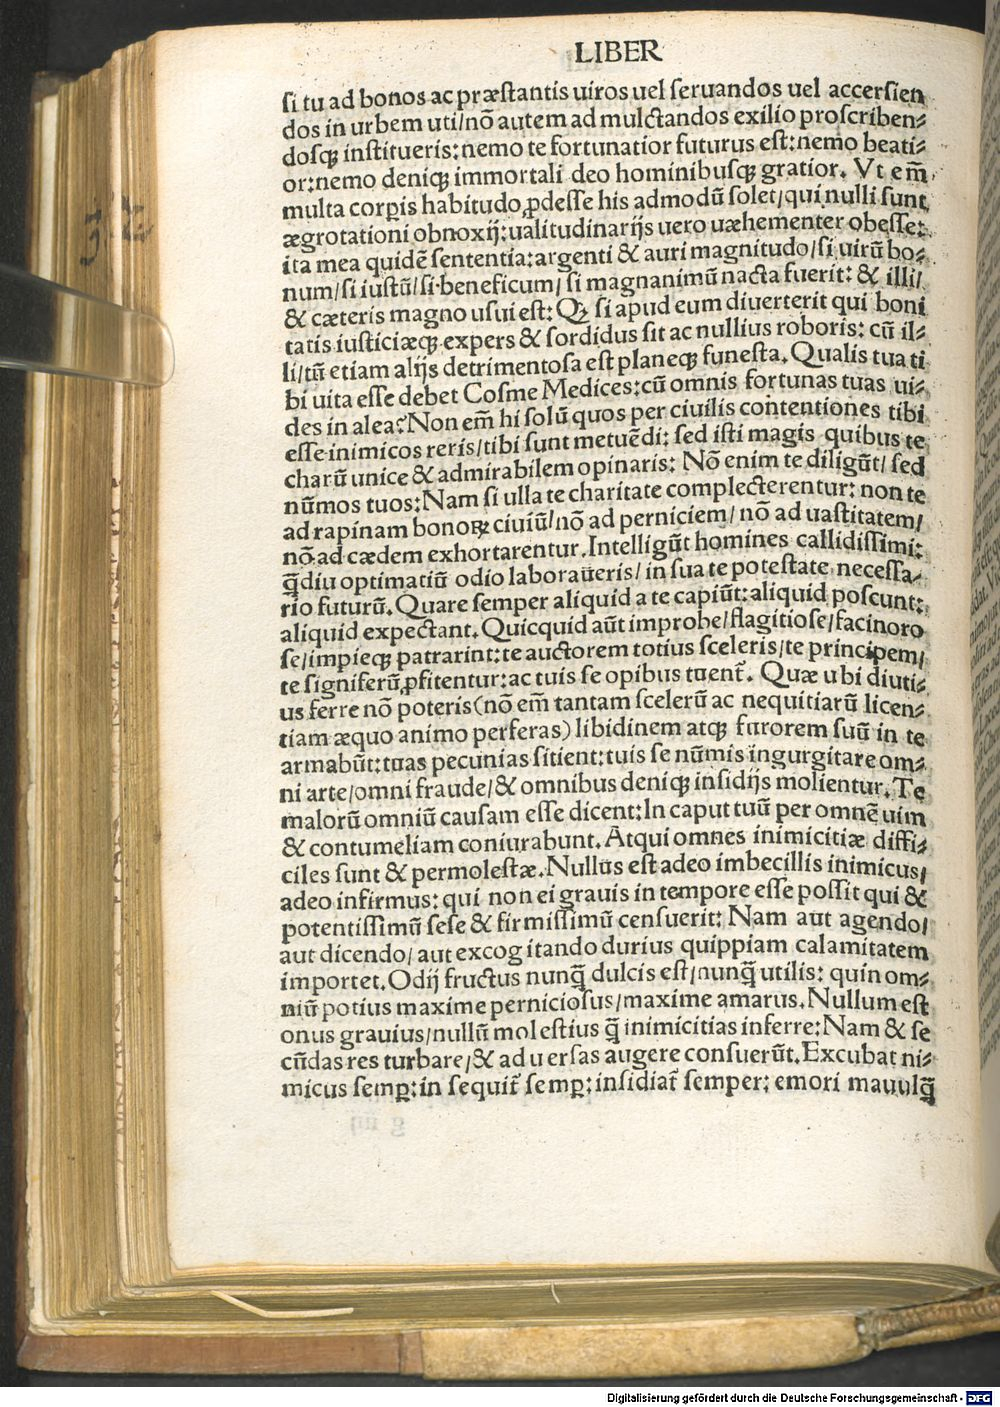 LIBER
si tu ad bonos ac præstantis uiros uel seruandos uel accersien
dos in urbem uti/nõ autem ad mulctandos exilio proscriben⸗
dosqꝫ institueris: nemo te fortunatior futurus est: nemo beati⸗
or: nemo deniqꝫ immortali deo hominibusqꝫ gratior. Vt em̃
multa corꝑis habitudo ꝓdesse his admodũ solet/qui nulli sunt
ægrotationi obnoxij: ualitudinarijs uero uæhementer obesse:
ita mea quidẽ sententia: argenti & auri magnitudo/si uirũ bo⸗
num/si iustũ/si beneficum/si magnanimũ nacta fuerit: & illi/
& cæteris magno usui est: Qꝫ si apud eum diuerterit qui boni
tatis iusticiæqꝫ expers & sordidus sit ac nullius roboris: cũ il⸗
li/tũ etiam alijs detrimentosa est planeqꝫ funesta. Qualis tua ti
bi uita esse debet Cosme Medices: cũ omnis fortunas tuas ui⸗
des in alea? Non em̃ hi solũ quos per ciuilis contentiones tibi
esse inimicos reris/tibi sunt metuẽdi: sed isti magis quibus te
charũ unice & admirabilem opinaris: Nõ enim te diligũt/sed
nũmos tuos: Nam si ulla te charitate complecterentur: non te
ad rapinam bonoꝝ ciuiũ/nõ ad perniciem/nõ ad uastitatem/
nõ ad cædem exhortarentur. Intelligũt homines callidissimi:
q̃diu optimatiũ odio laboraueris/in sua te potestate necessa⸗
rio futurũ. Quare semper aliquid a te capiũt: aliquid poscunt:
aliquid expectant. Quicquid aũt improbe/flagitiose/facinoro
se/impieqꝫ patrarint: te auctorem totius sceleris/te principem/
te signiferũ ꝓfitentur: ac tuis se opibus tuent̃. Quæ ubi diuti⸗
us ferre nõ poteris (nõ em̃ tantam scelerũ ac nequitiarũ licen⸗
tiam æquo animo perferas) libidinem atqꝫ furorem suũ in te
armabũt: tuas pecunias sitient: tuis se nũmis ingurgitare om⸗
ni arte/omni fraude/& omnibus deniqꝫ insidijs molientur. Te
malorũ omniũ causam esse dicent: In caput tuũ per omnẽ uim
& contumeliam coniurabunt. Atqui omnes inimicitiæ diffi⸗
ciles sunt & permolestæ. Nullus est adeo imbecillis inimicus/
adeo infirmus: qui non ei grauis in tempore esse possit qui &
potentissimũ sese & firmissimũ censuerit: Nam aut agendo/
aut dicendo/aut excogitando durius quippiam calamitatem
importet. Odij fructus nunq̃ dulcis est/nunq̃ utilis: quin om⸗
niũ potius maxime perniciosus/maxime amarus. Nullum est
onus grauius/nullũ molestius q̃ inimicitias inferre: Nam & se
cũdas res turbare/& aduersas augere consuerũt. Excubat ni⸗
micus semꝑ: in sequit̃ semꝑ: insidiat̃ semper: emori mauulq̃
Digitalisierung gefördert durch die Deutsche Forschungsgemeinschaft - DFG